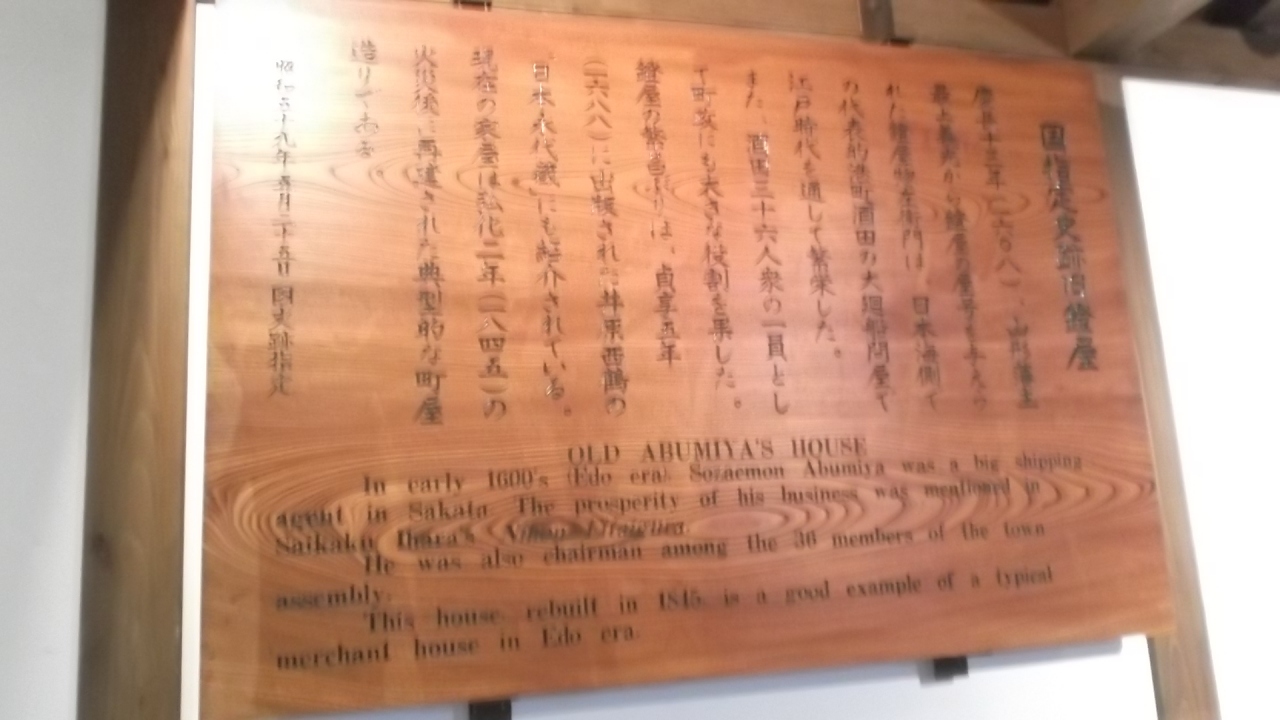 国指定史跡旧鐙屋
慶長十三年（一六〇八）、山形藩主
最上義光から鐙屋の屋号を与えら
れた鐙屋惣左衛門は、日本海側で
の代表的港町酒田の大廻船問屋で
江戸時代を通して繁栄した。
また、酒田三十六人衆の一員とし
て町政にも大きな役割を果した。
鐙屋の繁昌ぶりは、貞享五年
（一六八八）に出版された井原西鶴の
「日本永代蔵」にも紹介されている。
現在の家屋は弘化二年（一八四五）の
火災後に再建された典型的な町屋
造りである。
昭和五十九年五月二十五日 国史跡指定
OLD ABUMIYA'S HOUSE
In early 1600's (Edo era). Sozaemon Abumiya was a big shipping
agent in Sakata. The prosperity of his business was mentioned in
Saikaku Ihara's
He was also chairman among the 36 members of the town
assembly.
This house, rebuilt in 1845, is a good example of a typical
merchant house in Edo era.